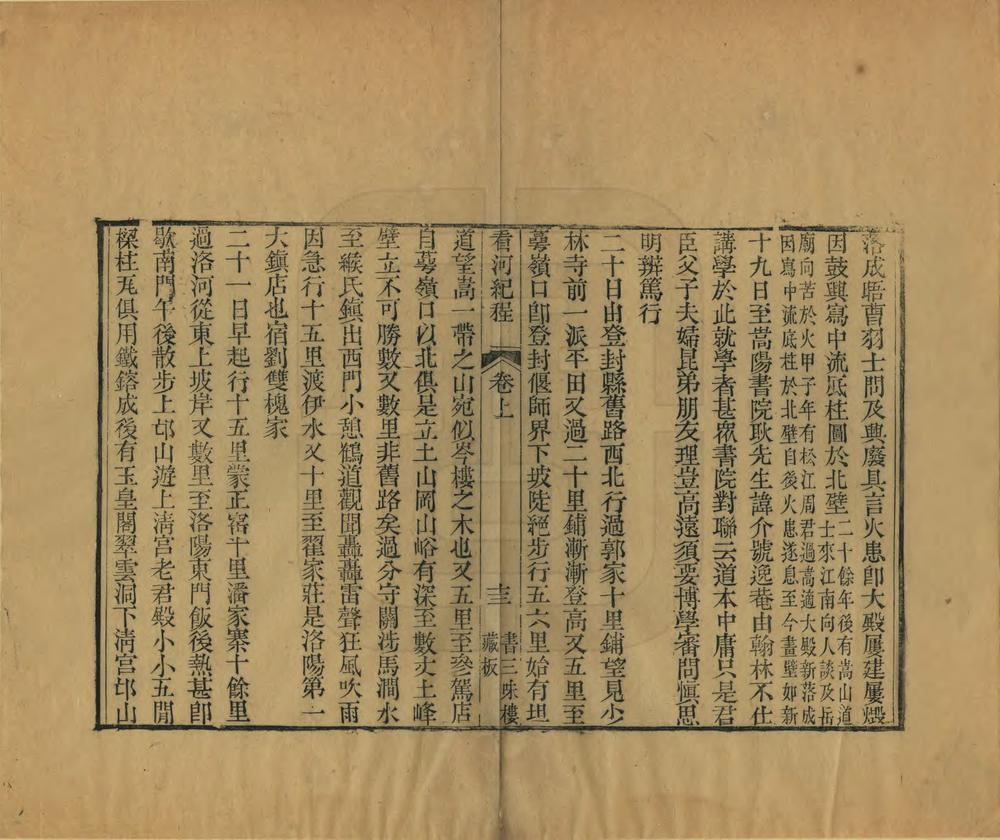 落成晤曹羽士問及興廢具言火患卽大殿屢建屢燬
因鼓興寫中流厎柱圖於北壁二十餘年後有嵩山道
士來江南向人談及岳
廟向苦於火甲子年有松江周君過嵩適大殿新落成
因寫中流底柱於北壁自後火患遂息至今畫壁如新
十九日至嵩陽書院耿先生諱介號逸菴由翰林不仕
講學於此就學者甚衆書院對聯云道本中庸只是君
臣父子夫婦昆弟朋友理豈高遠須要博學審問愼思
明辨篤行
二十日由登封縣舊路西北行過郭家十里鋪望見少
林寺前一派平田又過二十里鋪漸漸登高又五里至
蕚嶺口卽登封偃師界下坡陡絕步行五六里始有坦
看河紀程
卷上
十三
書三味樓
藏板
道望嵩一帶之山宛似岑樓之木也又五里至參駕店
自蕚嶺口以北俱是立土山岡山峪有深至數丈土峰
壁立不可勝數又數里非舊路矣過分守關涉馬澗水
至緱氏鎮出西門小憩鶴道觀聞轟轟雷聲狂風吹雨
因急行十五里渡伊水又十里至翟家莊是洛陽第一
大鎮店也宿劉雙槐家
二十一日早起行十五里蒙正窰十里潘家寨十餘里
過洛河從東上坡岸又數里至洛陽東門飯後熱甚卽
歇南門午後散步上邙山遊上淸宮老君殿小小五間
樑柱瓦俱用鐵鎔成後有玉皇閣翠雲洞下淸宮邙山